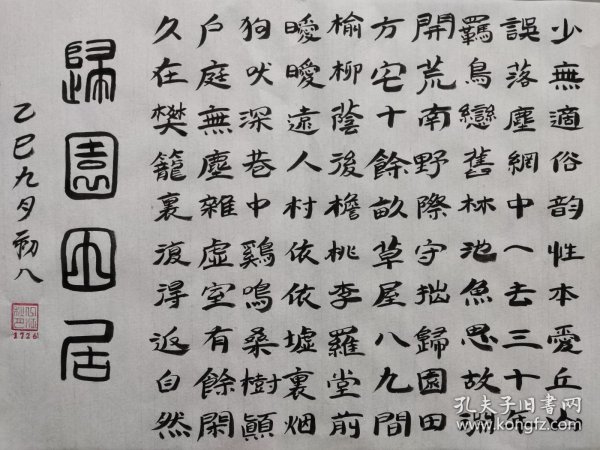 少無適俗韵性本愛丘山
誤落塵網中一去三十年
羈鳥戀舊林池魚思故淵
開荒南野際守拙歸園田
方宅十餘畝草屋八九間
榆柳蔭後檐桃李羅堂前
曖曖遠人村依依墟裏烟
狗吠深巷中鷄鳴桑樹顛
户庭無塵雜虛室有餘閑
久在樊籠裏復得返自然
歸園田居
乙巳九月初八
1726
孔夫子旧书网
www.kongfz.com